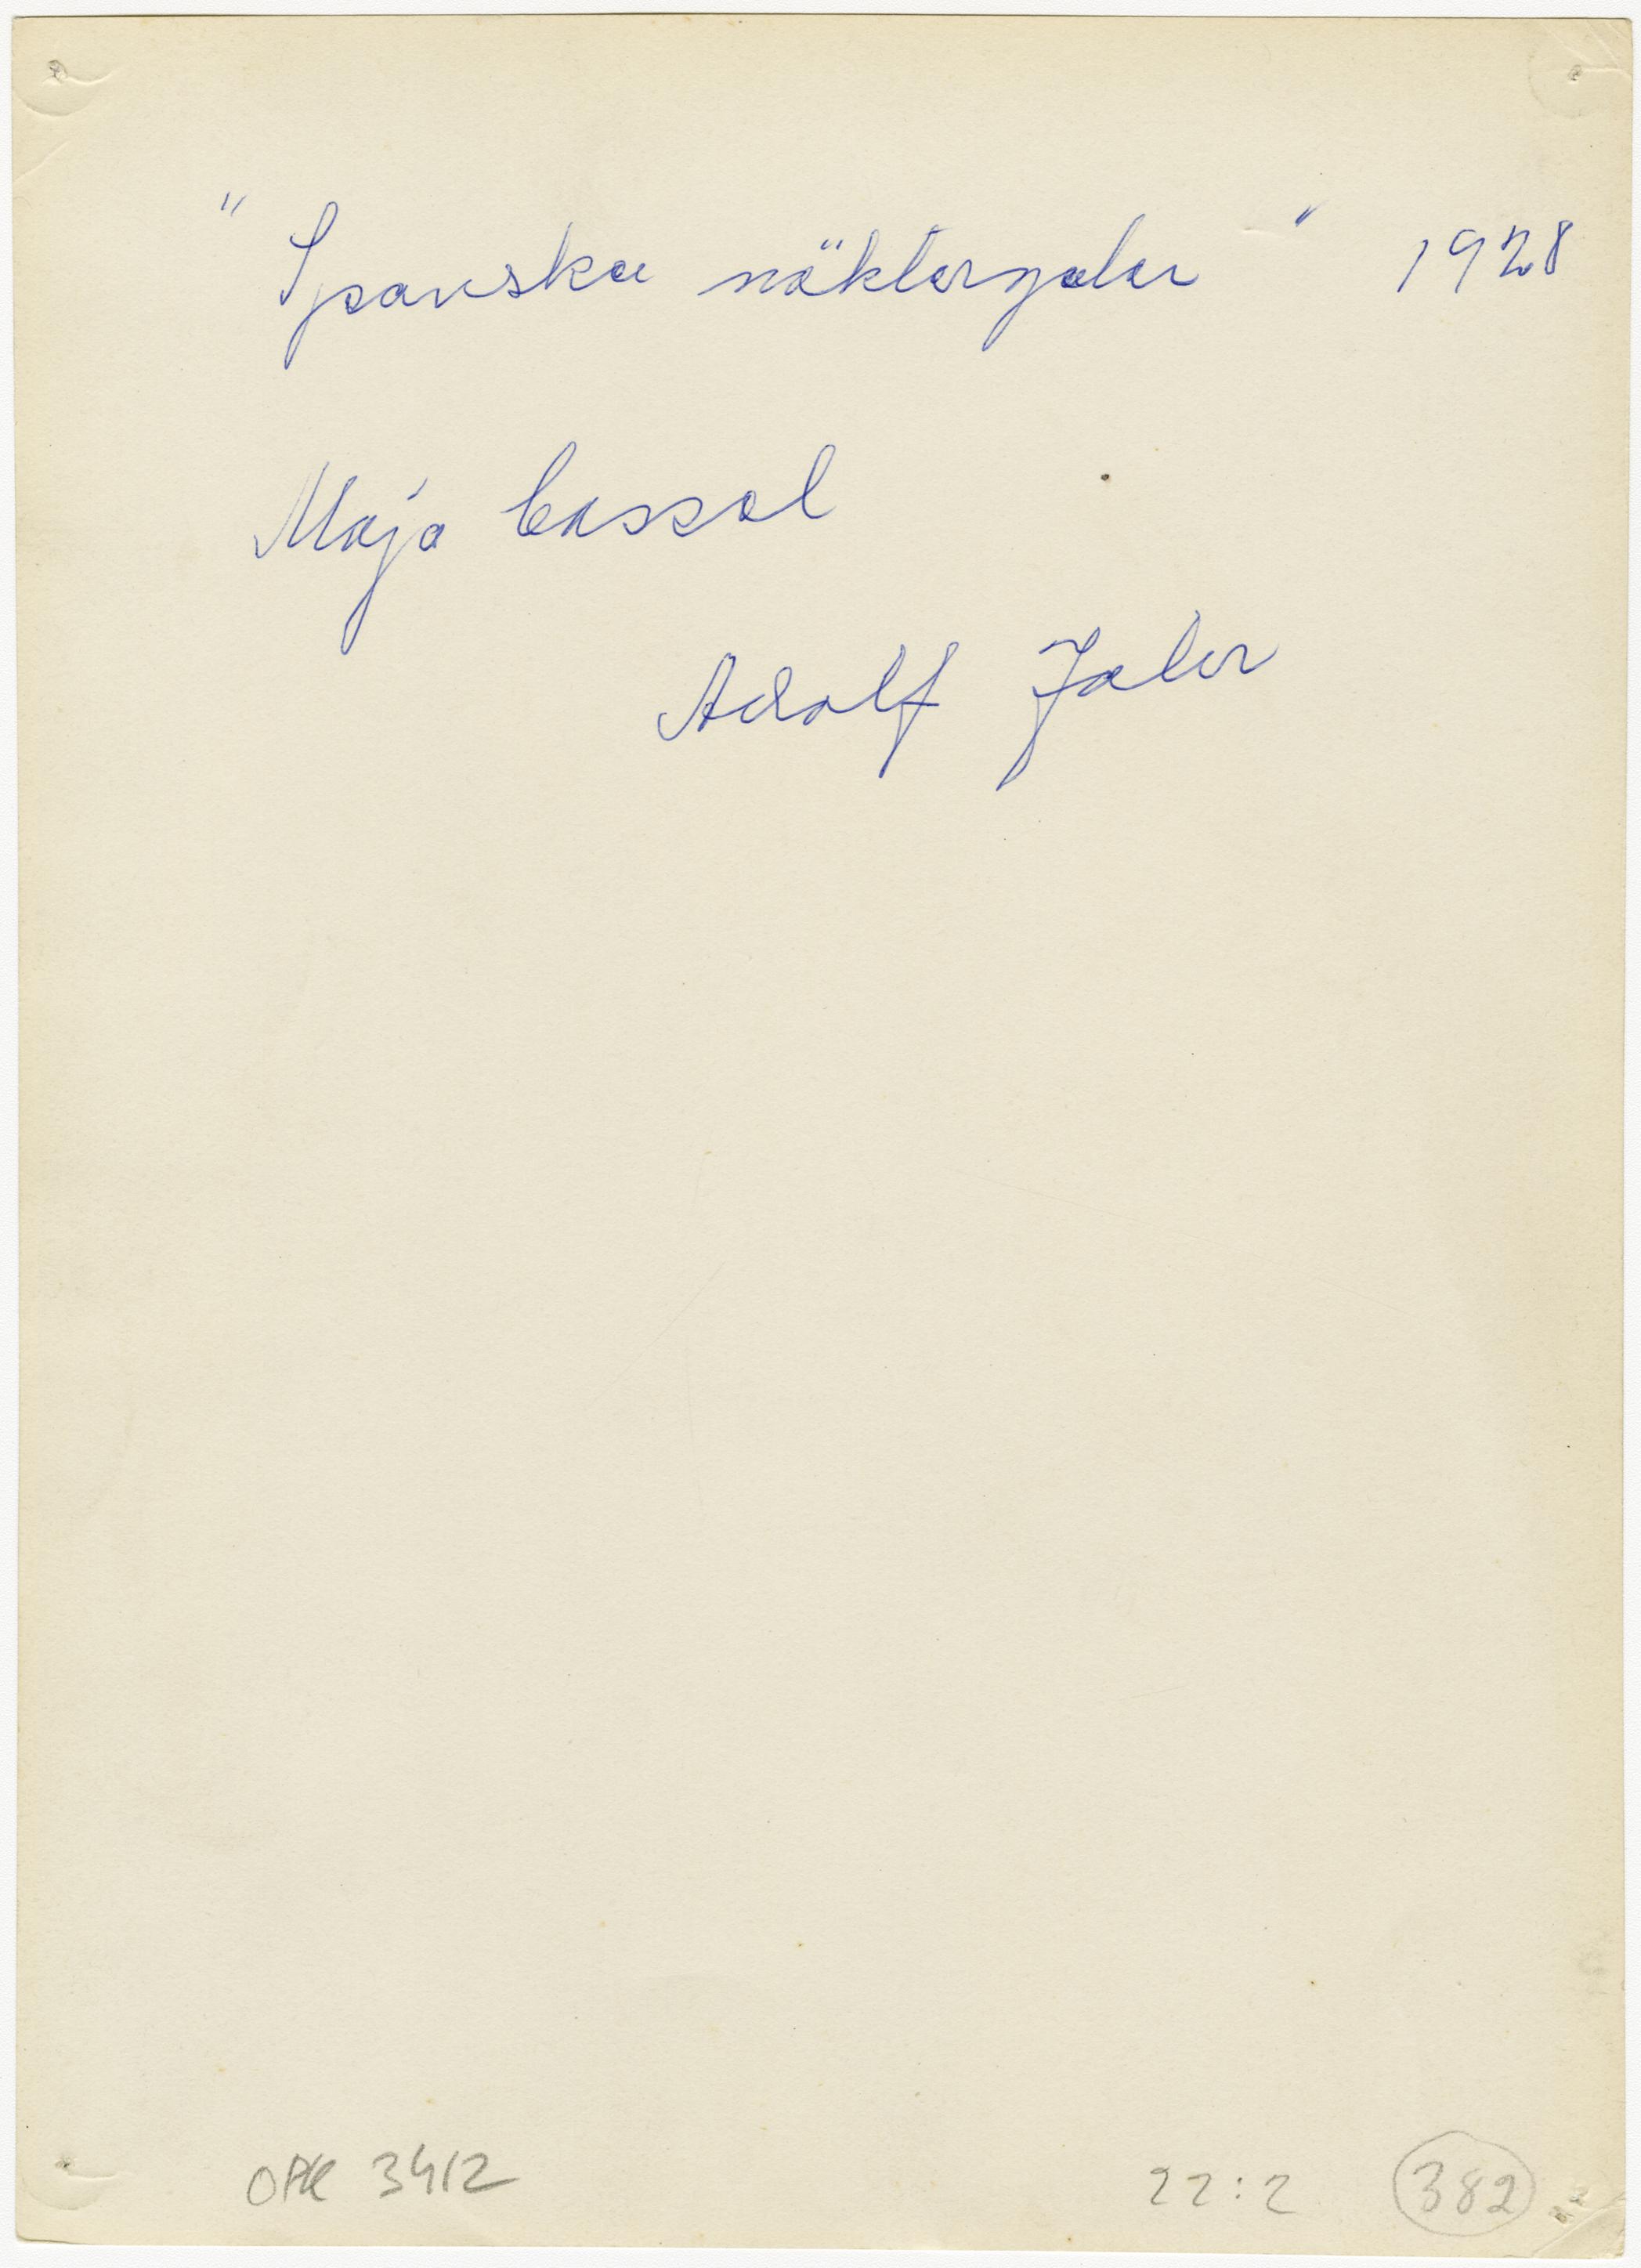 "Spanska näktergalen" 1928
Maja Cassel
Adolf Jahr
OPK 3412 22:2 382